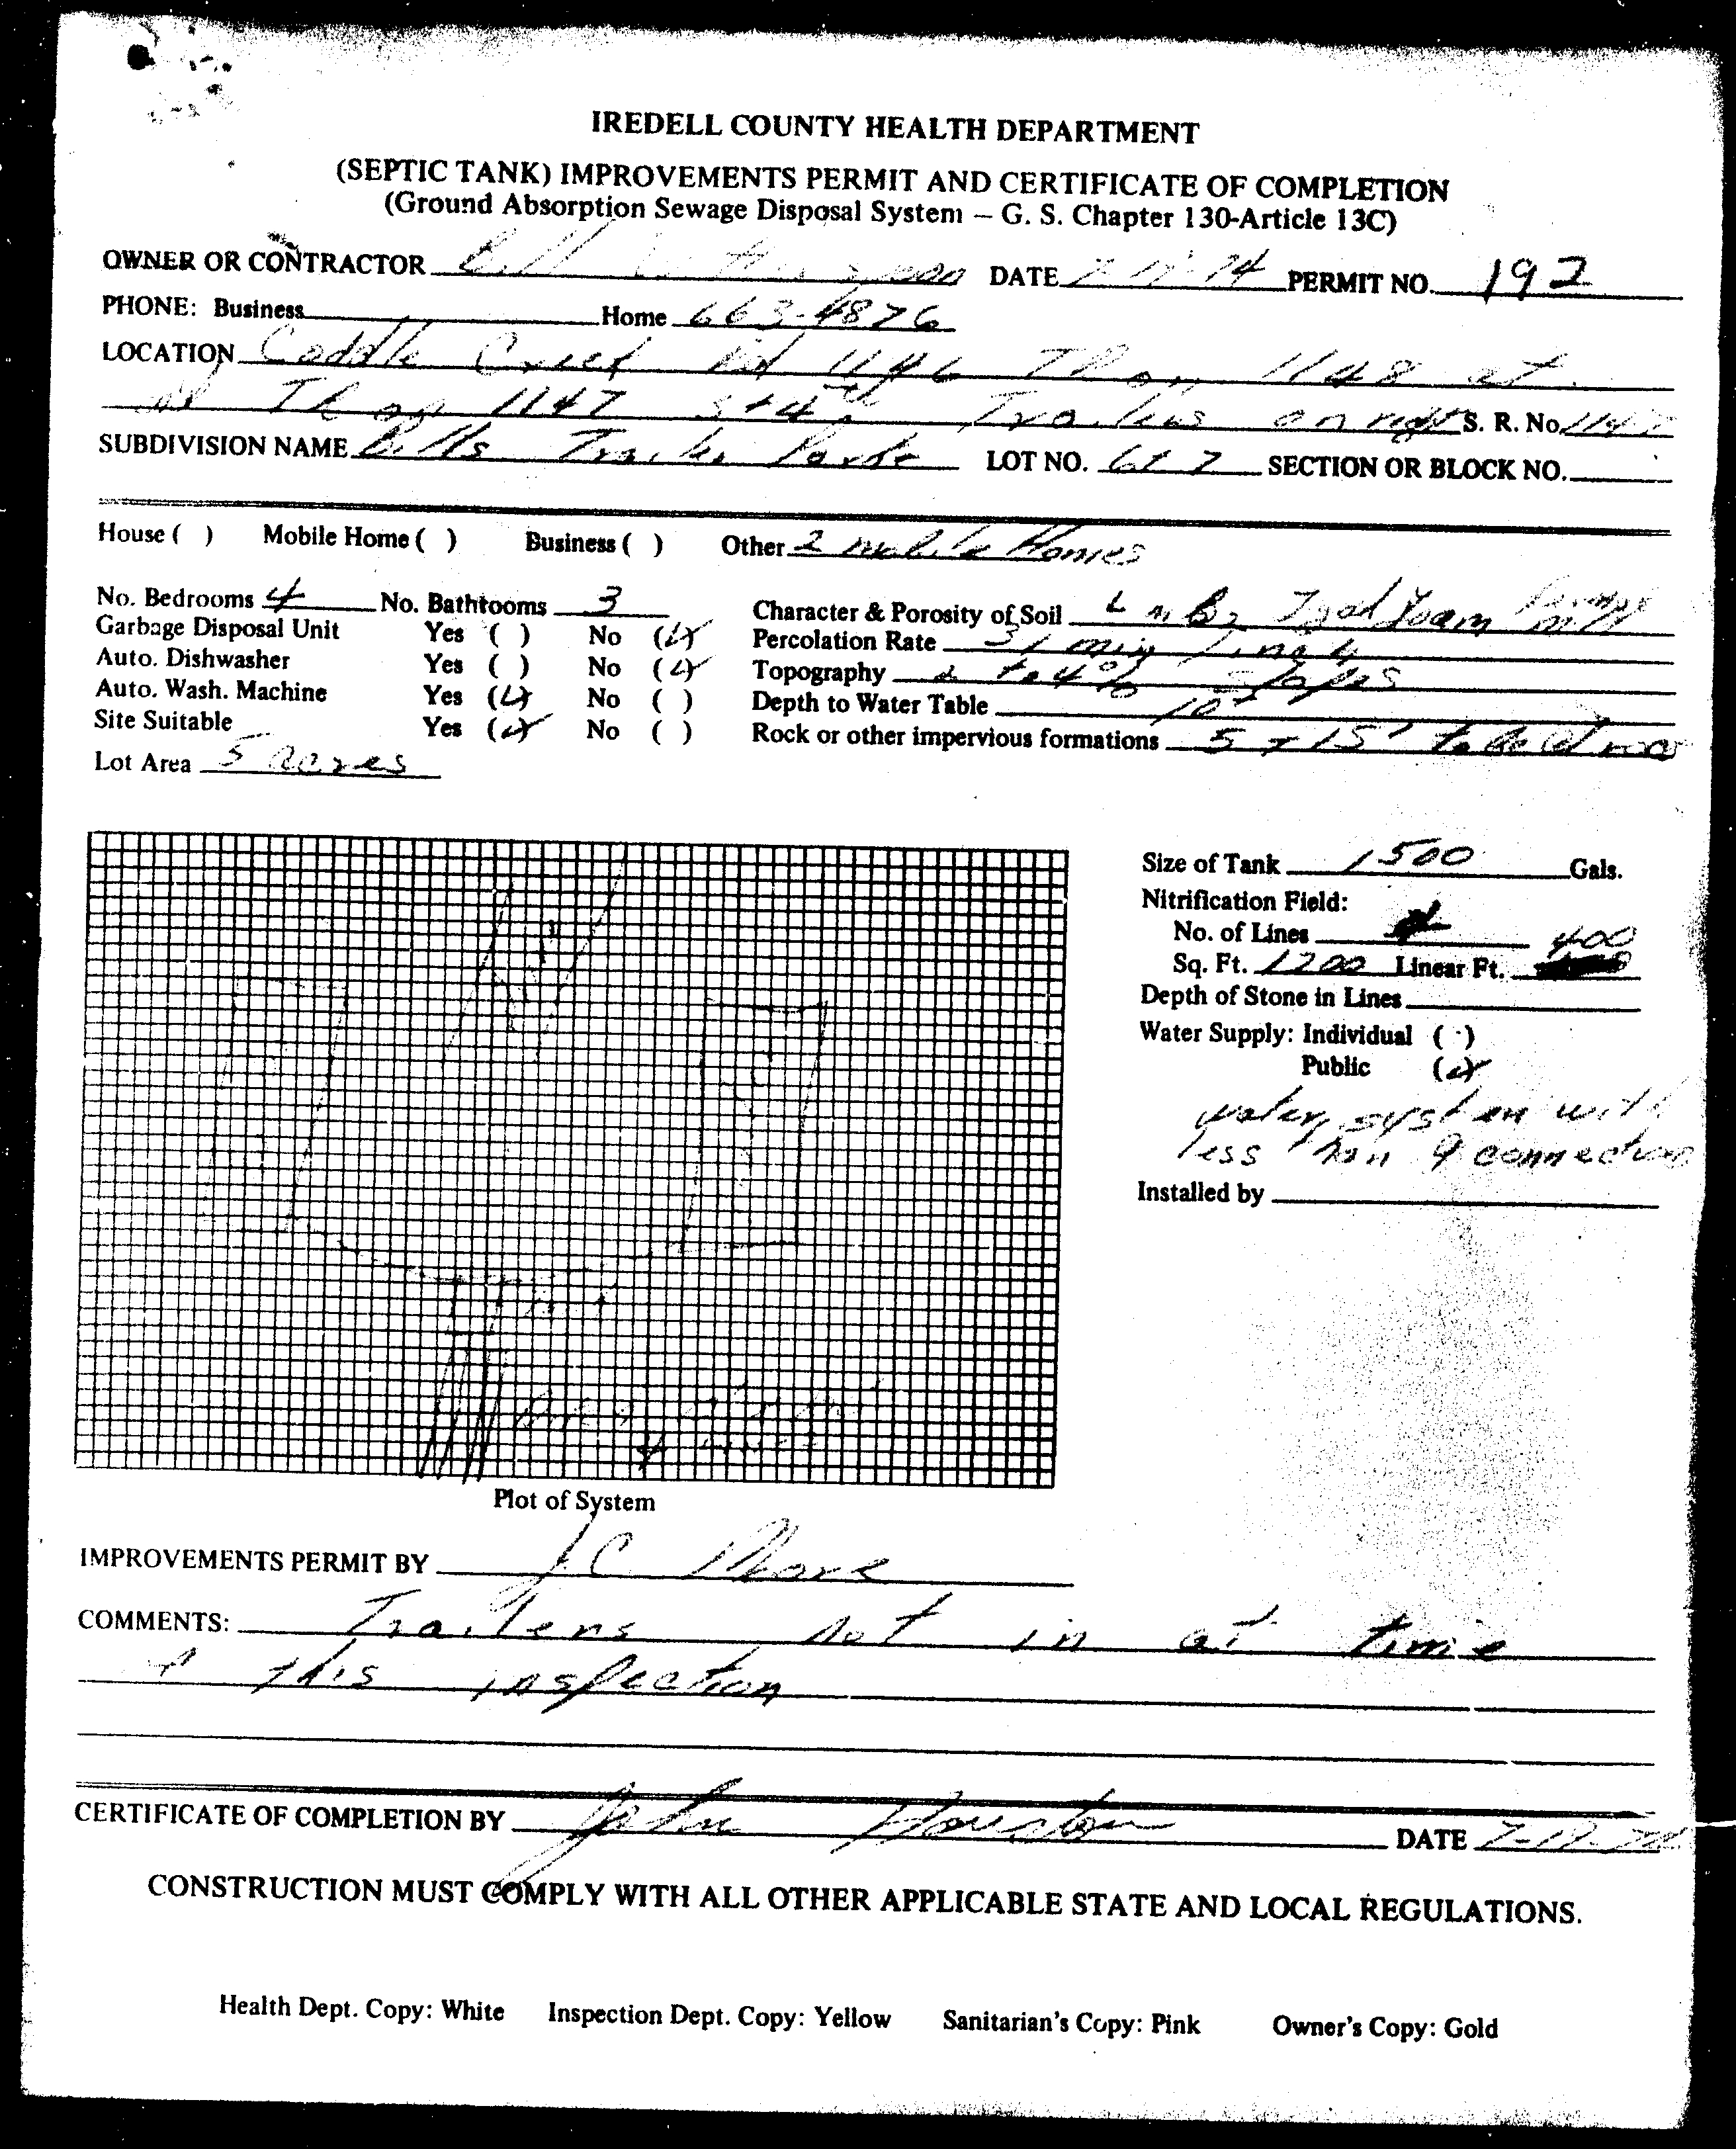 IREDELL COUNTY HEALTH DEPARTMENT
(SEPTIC TANK) IMPROVEMENTS PERMIT AND CERTIFICATE OF COMPLETION
(Ground Absorption Sewage Disposal System – G. S. Chapter 130-Article 13C)
OWNER OR CONTRACTOR Bill DATE PERMIT NO. 192
PHONE: Business Home 663-4876
LOCATION Coddle Creek Rd 1146 TL on 1148 at
TL on 1147 Trailers on right S. R. No. 1147
SUBDIVISION NAME Bills Trailer Park LOT NO. 6+7 SECTION OR BLOCK NO.
House ( ) Mobile Home ( ) Business ( ) Other 2 mobile Homes
No. Bedrooms 4 No. Bathtooms 3 Character & Porosity of Soil
Garbage Disposal Unit Yes ( ) No (✓) Percolation Rate 31 min / inch
Auto. Dishwasher Yes ( ) No (✓) Topography 2 to 4% slopes
Auto. Wash. Machine Yes (✓) No ( ) Depth to Water Table 10+
Site Suitable Yes (✓) No ( ) Rock or other impervious formations 5 + 15' to bedrock
Lot Area 5 acres
Size of Tank 1500 Gals.
Nitrification Field:
No. of Lines
Sq. Ft. 1200 Linear Ft. 400
Depth of Stone in Lines
Water Supply: Individual ( )
Public (✓)
water system with
less than 9 connections
Installed by
Plot of System
IMPROVEMENTS PERMIT BY J.C.
COMMENTS: Trailers not in at time
of this inspection
CERTIFICATE OF COMPLETION BY John Houston DATE
CONSTRUCTION MUST COMPLY WITH ALL OTHER APPLICABLE STATE AND LOCAL REGULATIONS.
Health Dept. Copy: White Inspection Dept. Copy: Yellow Sanitarian's Copy: Pink Owner's Copy: Gold